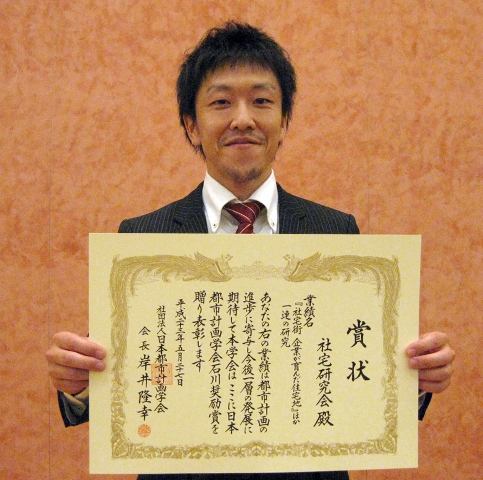 賞状
社宅研究会殿
業績名
『社宅街 企業が育んだ住宅地』ほか
一連の研究
あなたの右の業績は都市計画の
進歩に寄与し今後一層の発展に
期待して本学会はここに日本
都市計画学会石川奨励賞を
贈り表彰します
平成二十三年五月二十七日
社団法人日本都市計画学会
会長 岸井隆幸